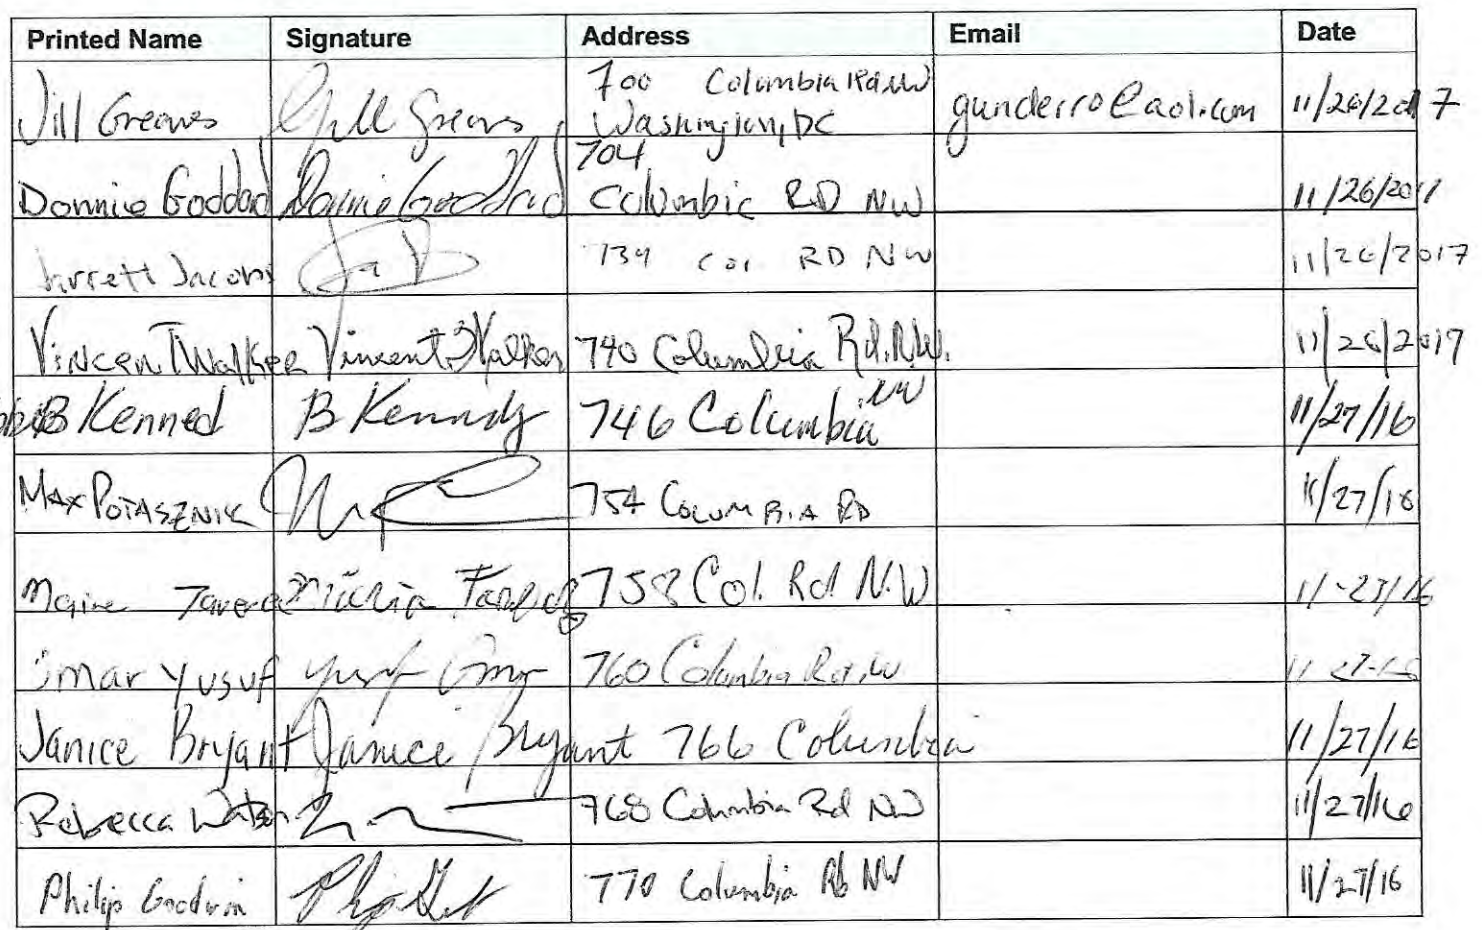 Printed Name Signature Address Email Date
Jill Greaves Jill Greaves 700 Columbia Rd NW
Washington, DC gunderro@aol.com 11/26/2017
Donnie Goddad Donnie Goddad 704
Columbia RD NW 11/26/2017
Jarrett Jacobs 739 Col RD NW 11/26/2017
Vincent Walker Vincent Walker 740 Columbia Rd. N.W. 11/26/2017
B Kenned B Kennedy 746 Columbia NW 11/27/16
Max Potasznik 754 Columbia RD 11/27/16
Tavera 758 Col. Rd N.W 11-27/16
Omar Yusuf Yusuf Omar 760 Columbia Rd NW
Janice Bryant Janice Bryant 766 Columbia 11/27/16
Rebecca Watson 768 Columbia Rd NW 11/27/16
Philip Goodwin 770 Columbia Rd NW 11/27/16